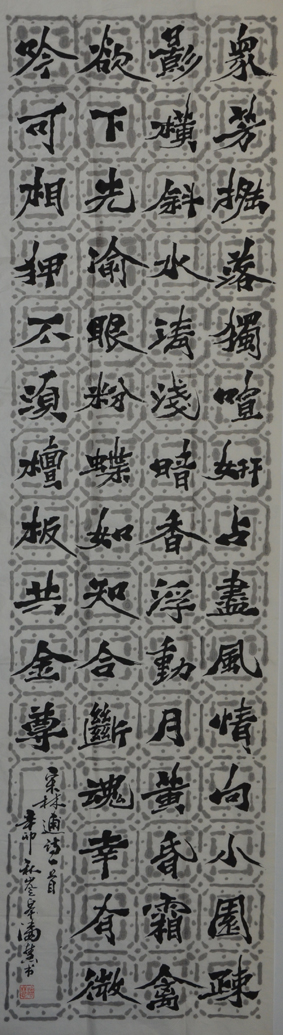 衆芳搖落獨喧妍占盡風情向小園疎
影橫斜水清淺暗香浮動月黃昏霜禽
欲下先偷眼粉蝶如知合斷魂幸有微
吟可相狎不須檀板共金尊
宋林逋詩一首
辛卯秋